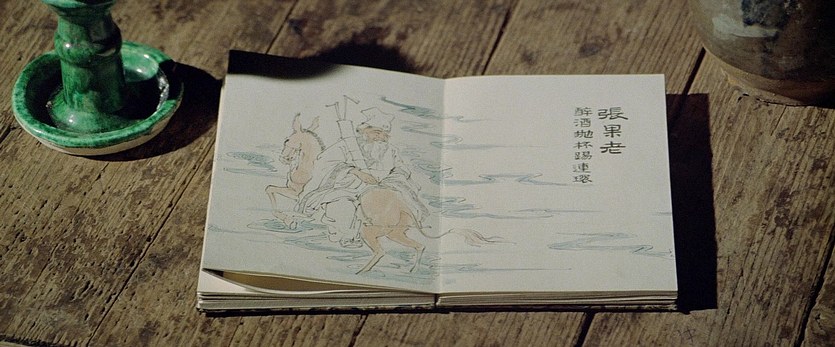 張果老
醉酒拋杯踢連環